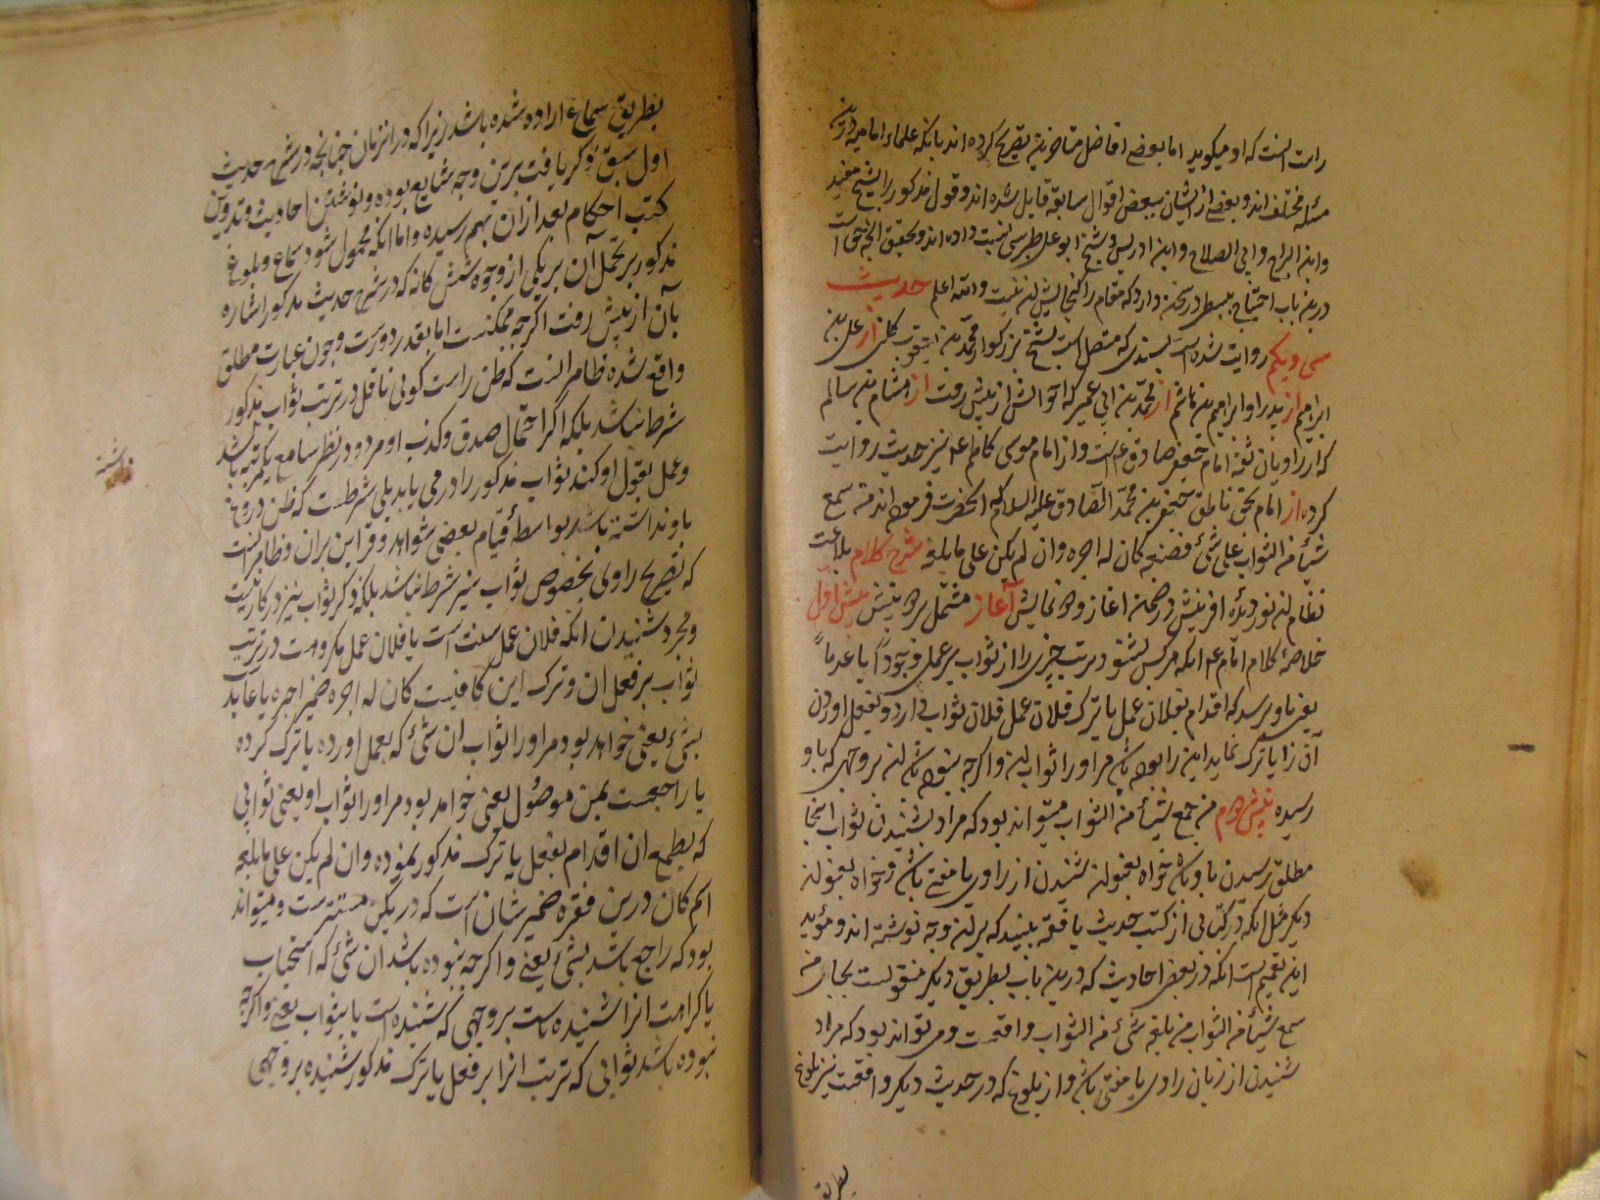 راست است که او میکوید اما بعضی افاضل متاخرین تصریح کرده اند بانکه علماء امامیه درین
مسئله مختلف اند و بعضی از ایشان ببعض اقوال سابقه قایل شده اند و قول مذکور را بشیخ مفید
وابن البراج وابی الصلاح وابن ادریس وشیخ ابو علی طبرسی نسبت داده اند وتحقیق انچه حق است
درین باب احتیاج ببسط در سخن دارد که مقام را کنجایش ان نیست والله اعلم حدیث
سی ویکم روایت شده است بسندی که متصل است بشیخ بزرکوار محمد بن یعقوب کلینی از علی بن
ابراهیم از پدر او ابراهیم بن هاشم از محمد بن ابی عمیر که احوالش از پیش رفت از هشام بن سالم
که از راویان ثقه امام جعفر صادق عم است واز امام موسی کاظم عم نیز حدیث روایت
کرده از امام بحق ناطق جعفر بن محمد الصادق علیه السلام که انحضرت فرموده اند من سمع
شیأ من الثواب علی شئ فصنعه کان له اجره وان لم یکن علی ما بلغه شرح کلام بلاغت
نظام ان نور دیده افرینش در ضمن اغاز ودو نمایش آغاز مشتمل بر دو بینش بینش اول
خلاصهٔ کلام امام عم انکه هر کس بشنود ترتب چیزی را از ثواب بر عملی وجودًا یا عدمًا
یعنی باو برسد که اقدام بفلان عمل یا ترک فلان عمل فلان ثواب دارد و بفعل اوردن
آن را یا ترک نماید این را بوده باشد مر او را ثواب ان واکرچه نبوده باشد ان بر وجهی که باو
رسیده بینش دوم من سمع شیأ من الثواب میتواند بود که مراد بشنیدن ثواب اینجا
مطلق رسیدن باو باشد خواه بعنوان شنیدن از راوی یا مفتی باشد وخواه بعنوان
دیکر مثل انکه در کتابی از کتب حدیث یا فقه ببیند که بر ان وجه نوشته اند ومؤید
این تعمیم است انکه در بعض احادیث که درین باب بطریق دیکر منقولست بجای من
سمع شیأ من الثواب من بلغه شئ من الثواب واقعست ومی تواند بود که مراد
شنیدن از زبان راوی یا مفتی باشد واز بلوغ که در حدیث دیکر واقعست نیز بلوغ
بطریق
بطریق سماع اراده شده باشد زیرا که در انزمان چنانچه در شرح حدیث
اول سبق ذکر یافت برین وجه شایع بوده ونوشتن احادیث وتدوین
کتب احکام بعد از ان بهم رسیده واما انکه محمول شود سماع وبلوغ
مذکور بر تحمل آن بر یکی از وجوه شش کانه که در شرح حدیث مذکور اشاره
بآن از پیش رفت اکرچه ممکنست اما بقدر دورست وچون عبارت مطلق
واقع شده ظاهر انست که ظن راست کوئی ناقل در ترتب ثواب مذکور
شرط نباشد بلکه اکر احتمال صدق وکذب او هر دو در نظر سامع یکمرتبه باشد
وعمل بقول او کند ثواب مذکور را در می یابد بلی شرطست که ظن دروغ
باو نداشته باشد بواسطهٔ قیام بعضی شواهد وقراین بران وظاهر انست
که تصریح راوی بخصوص ثواب نیز شرط نباشد بلکه ذکر ثواب نیز در کار نیست
ومجرد شنیدن انکه فلان عمل سنت است یا فلان عمل مکروهست در ترتب
ثواب بر فعل ان وترک این کافیست کان له اجره ضمیر اجره یا عاید
بشئ یعنی خواهد بود مر او را ثواب ان شئ که بعمل اورده یا ترک کرده
یا راجعست بمن موصول یعنی خواهد بود مر او را ثواب او یعنی ثوابی
که بطمع ان اقدام بفعل یا ترک مذکور نموده وان لم یکن علی ما بلغه
اسم کان درین فقره ضمیر شان است که در یکن مستترست ومیتواند
بود که راجع باشد بشئ یعنی واکرچه نبوده باشد ان شئ که استحباب
یا کراهت انرا شنیده است بر وجهی که شنیده است یا بثواب یعنی واکرچه
نبوده باشد ثوابی که ترتب انرا بر فعل یا ترک مذکور شنیده بر وجهی